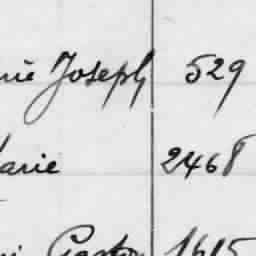 Joseph 529
arie 2468
Gaston 1615